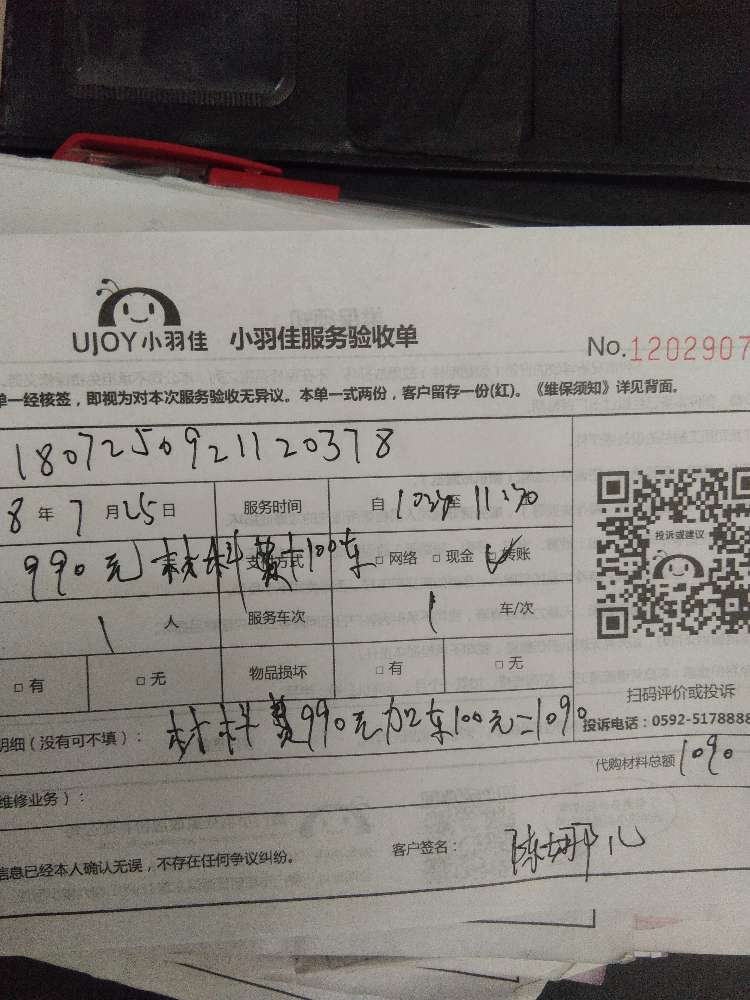 UJOY小羽佳 小羽佳服务验收单 No.1202907
单一经核签，即视为对本次服务验收无异议。本单一式两份，客户留存一份(红)。《维保须知》详见背面。
1807250921120378
8年7月25日 服务时间 自10:30至11:30
投诉或建议
990元材料费+100车 支付方式 □ 网络 □ 现金 □ 转账
1人 服务车次 1车/次
□ 有 □ 无 物品损坏 □ 有 □ 无
扫码评价或投诉
投诉电话：0592-5178888
明细（没有可不填）： 材料费990元加车100元=1090
代购材料总额 1090
维修业务）：
信息已经本人确认无误，不存在任何争议纠纷。 客户签名：